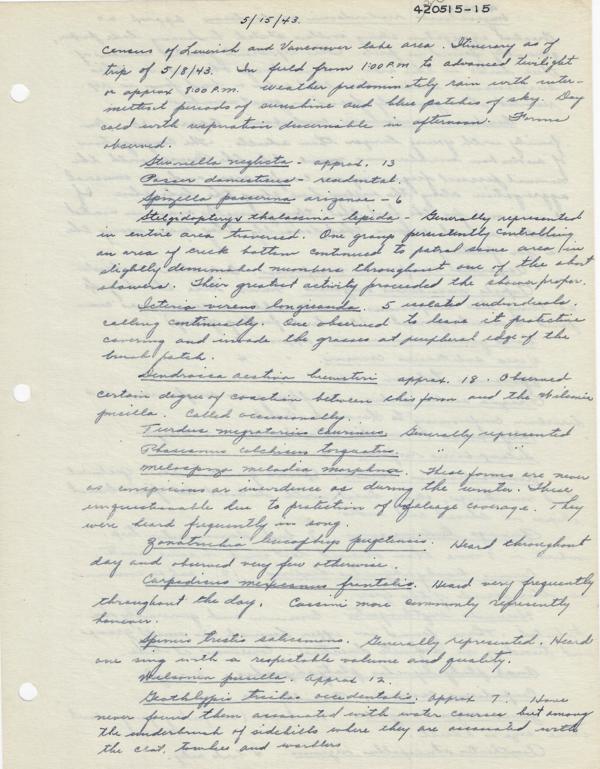 420515-15
5/15/43.
Census of Lewish and Vancouver lake area. Itinerary as of
trip of 5/8/43. In field from 1:00 P.M. to advanced twilight
or approx 8:00 P.M. Weather predominately rain with inter-
mittent periods of sunshine and blue patches of sky. Day
cold with respiration discernible in afternoon. Forms
observed.
Sturnella neglecta - approx. 13
Passer domesticus - residental.
Spizella passerina arizonae - 6
Stelgidopteryx thalassina lepida - Generally represented
in entire area traversed. One group persistently controlling
an area of creek bottom continued to patrol same area in
slightly deminished numbers throughout one of the short
showers. Their greatest activity proceeded the shower proper.
Icteria virens longicauda. 5 isolated individuals.
calling continually. One observed to leave it protective
covering and invade the grasses at peripheral edge of the
brush patch.
Dendroica aestiva brewsteri approx. 18. Observed
certain degree of coaction between this form and the Wilsonia
pusilla. Called occasionally.
Turdus migratorius caurinus Generally represented
Phasianus colchicus torquatus " "
Melospiza melodia morphna. These forms are never
as conspicious or inevidence as during the winter. These
unquestionable due to protection of foleage coverage. They
were heard frequently in song.
Zonotrichia leucophrys pugetensis. Heard throughout
day and observed very few otherwise.
Carpodacus mexicanus frontalis. Heard very frequently
throughout the day. Cassini more commonly represently
however.
Spinus tristis salicamans. Generally represented. Heard
one sing with a respectable volume and quality.
Wilsonia pusilla. Approx 12.
Geothlypis trichas occidentalis. approx 7. Have
never found them associated with water courses but among
the underbrush of sidehills where they are associated with
the chat, towhee and warblers